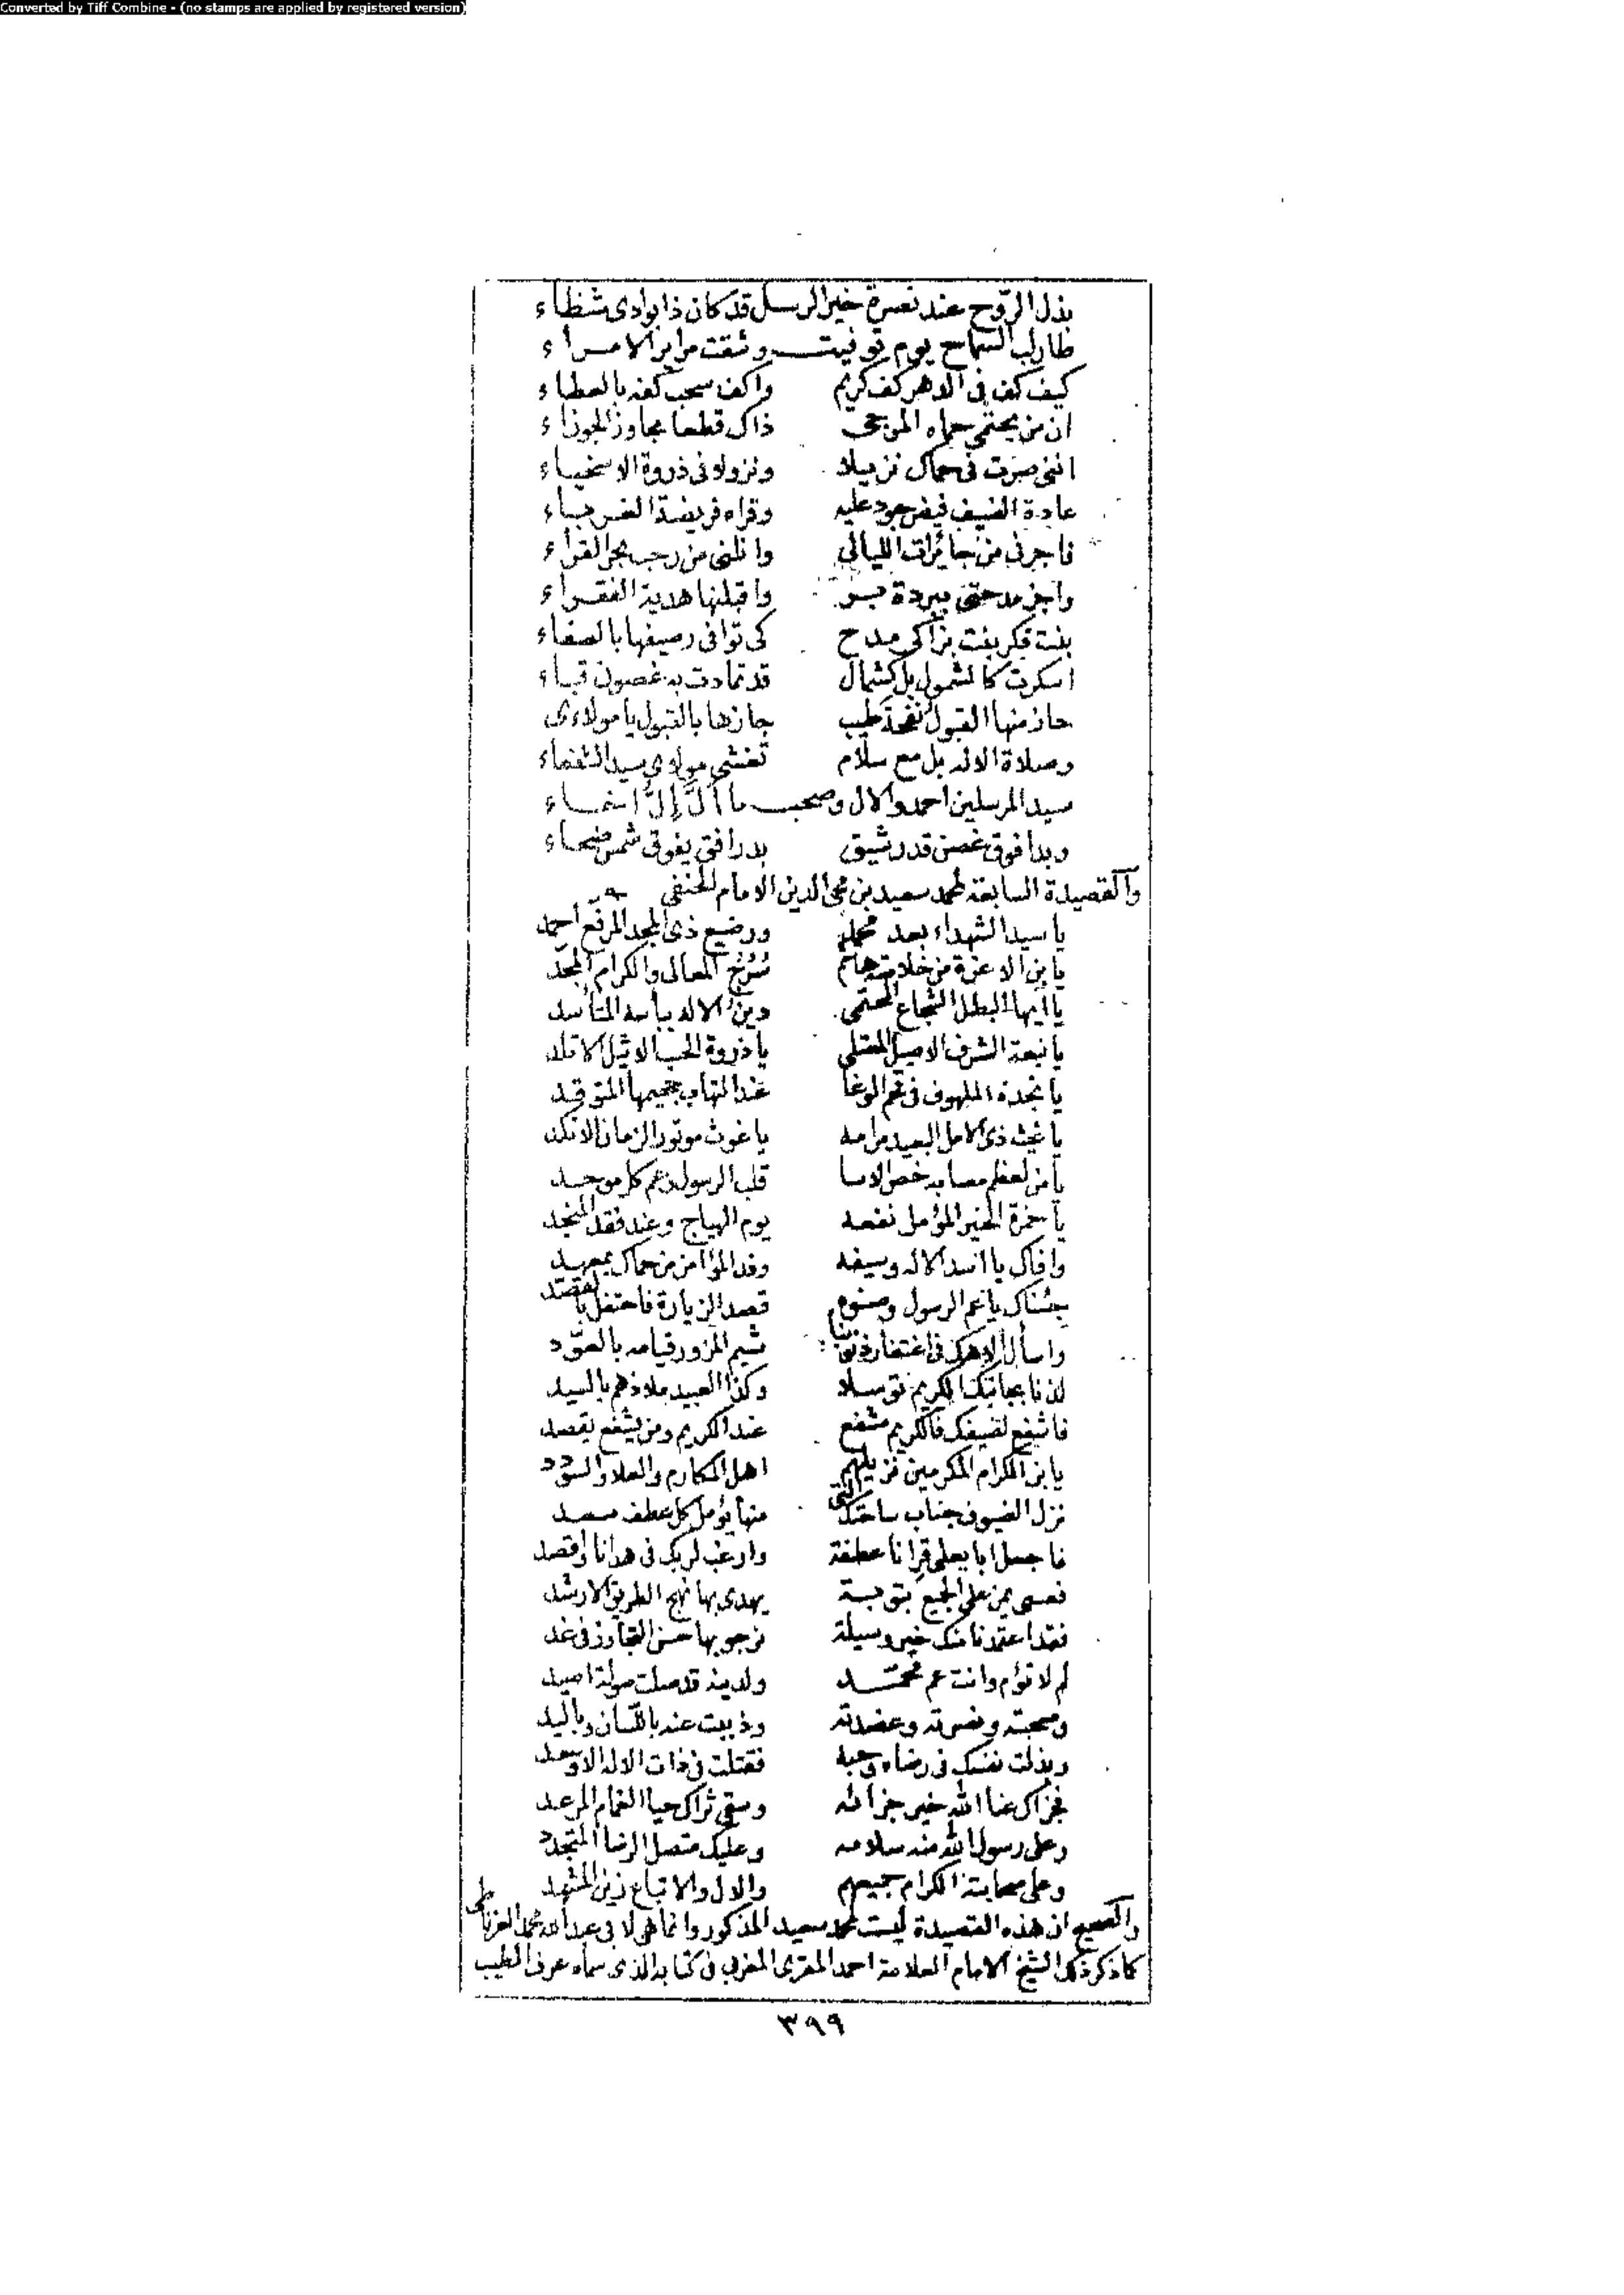 Converted by Tiff Combine - (no stamps are applied by registered version)
بذل الروح عند نصرة خير الرسل قد كان ذا بوادى شظاء
طار لب السماح يوم توفيت وشقت مراير الامراء
كيف كف فى الدهر كف كريم واكف سحب كفه بالعطاء
ان من يحتمي حماه المرجى ذاك قطعا مجاوز الجوزاء
اننى صرت فى حماك نزيلا ونزولى فى ذروة الاسخياء
عادة الضيف فيض جود عليه وقراه فريضة الغرباء
فاجرنى من جائرات الليالى وانلنى من رحب بحر القراء
واجز مدحتى ببردة واقبلنها هدية الفقراء
بنت فكر بزاكى مدح كى توافى رصيفها بالصفاء
اسكرت كالشمول بل كشمال قد تمادت به غصون قباء
حاز منها القبول نفحة طيب جازها بالقبول يا مولاءى
وصلاة الاله بل مع سلام تغشى مولاى سيد الشفعاء
سيد المرسلين احمد والال وصحب ما
وبدا فوق غصن قد رشيق بدر افق يفوق شمس ضحاء
والقصيدة السابعة لمحمد سعيد بن محى الدين الامام الحنفى
يا سيد الشهداء بعد محمد ورضيع ذى المجد المرفع احمد
يا بن الاعزة من خلاصة هاشم سُرُج المعالى والكرام المجّد
يا ايها البطل الشجاع المحتمى دينُ الاله ببأسه المتأسد
يا نبعة الشرف الاصيل المعتلى يا ذروة الحسب الاثيل الاتلد
يا نجدة الملهوف فى قحم الوغا عند التهاب جحيمها المتوقد
يا غيث ذى الامل البعيد مرامه يا غوث موتور الزمان الانكد
يا من لعظم مصابه خص الاسا قلب الرسول وعم كل موحد
يا حمزة الخير المؤمل نفعه يوم الهياج وعند فقد المنجد
وافاك يا اسد الاله وسيفه وفد من حماك بمعهد
جئناك يا عم الرسول وصنوه قصد الزيارة فاحتفل بالقصّد
واسأل الاهك فى اغتفار ذنوبنا شيم المزور قيامه بالعوّد
لذنا بجانبك الكريم توسلا وكذا العبيد ملاذهم بالسيد
فاشفع لضيفك فالكريم مشفع عند الكريم ومن يشفع يقصد
يا بن الكرام المكرمين نزيلهم اهل المكارم والعلا والسؤدد
نزل الضيوف جناب ساحتك التى منها يؤمل كل عطف مسعد
فاجعل ابا يعلى قِرانا عطفة وارغب لربك فى هدانا واقصد
فعسى يمن على الجميع بتوبة يهدى بها نهج الطريق الارشد
فقد اعتمدنا منك خير وسيلة نرجو بها حسن التجاوز فى غد
لم لا تؤم وانت عم محمد ولدينه قد صلت صولة اصيد
وصحبته ونصرته وعضدته وذببت عنه باللسان وباليد
وبذلت نفسك فى رضاه وحبه فقتلت فى ذات الاله الاوحد
فجزاك عنا الله خير جزائه وسقى ثراك حيا الغمام المرعد
وعلى رسول الله منه سلامه وعليك متصل الرضا المتجدد
وعلى صحابته الكرام جميعهم والال والاتباع زين المشهد
والصحيح ان هذه القصيدة ليست لمحمد سعيد المذكور وانما هى لابى عبد الله محمد الغرناطى
كما ذكر ذلك الشيخ الامام العلامة احمد المقرى المغربى فى كتابه الذى سماه عرف الطيب
٣٩٩